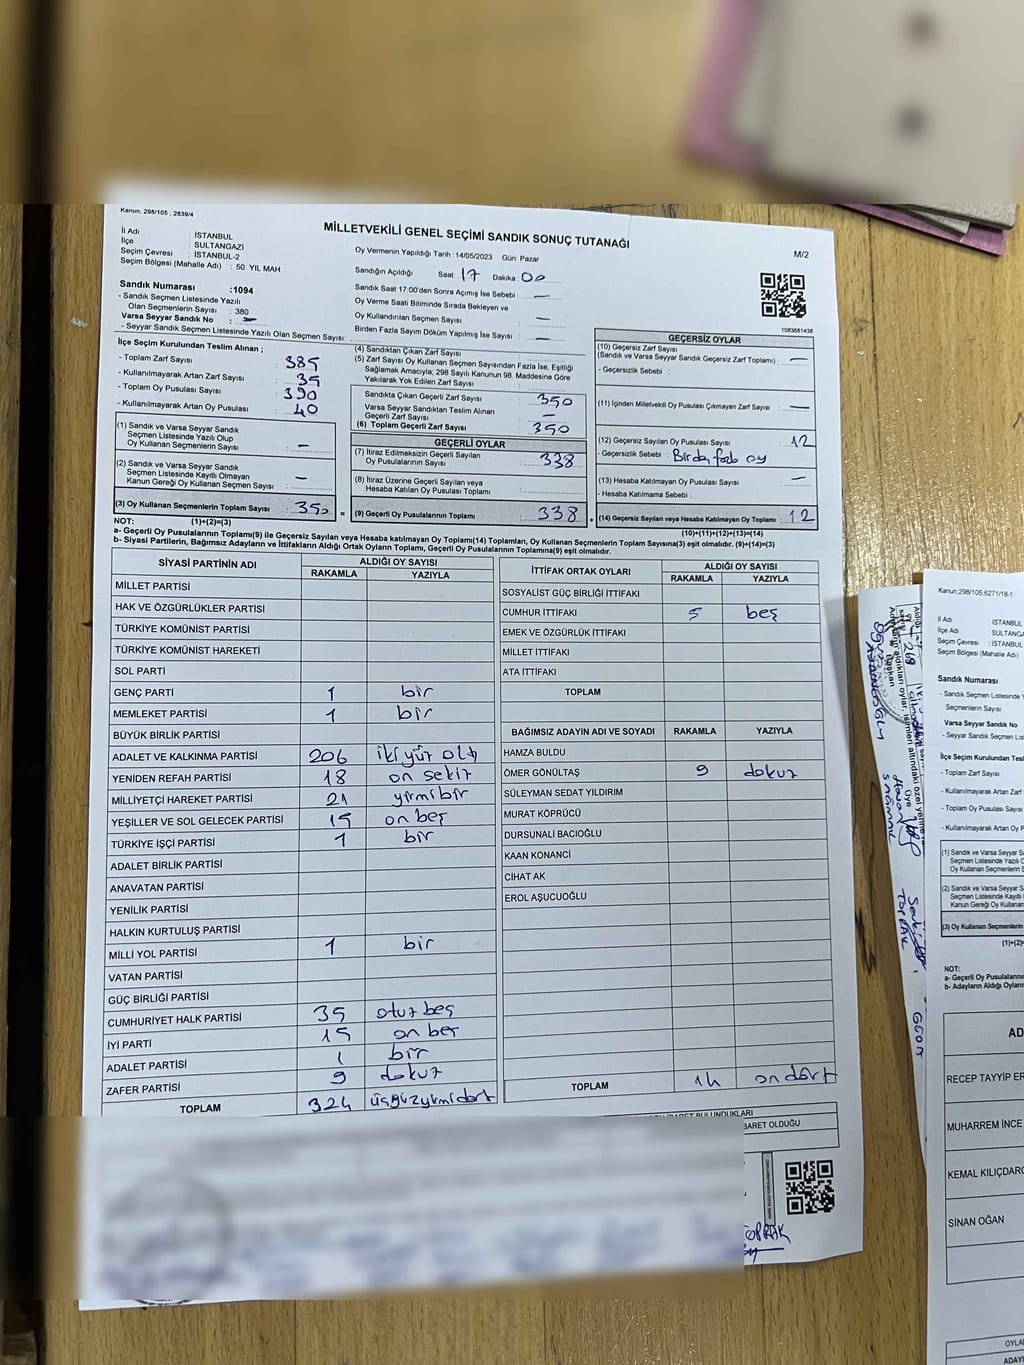 Kanun: 298/105 , 2839/4
MİLLETVEKİLİ GENEL SEÇİMİ SANDIK SONUÇ TUTANAĞI
M/2
İl Adı : İSTANBUL
İlçe : SULTANGAZİ
Seçim Çevresi : İSTANBUL-2
Seçim Bölgesi (Mahalle Adı) : 50. YIL MAH
Sandık Numarası :1094
- Sandık Seçmen Listesinde Yazılı
Olan Seçmenlerin Sayısı : 380
Varsa Seyyar Sandık No : —
- Seyyar Sandık Seçmen Listesinde Yazılı Olan Seçmen Sayısı:
Oy Vermenin Yapıldığı Tarih : 14/05/2023 Gün: Pazar
Sandığın Açıldığı Saat: 17 Dakika 00
Sandık Saat 17:00'den Sonra Açımış İse Sebebi : —
Oy Verme Saati Bitiminde Sırada Bekleyen ve
Oy Kullandırılan Seçmen Sayısı : —
Birden Fazla Sayım Döküm Yapılmış İse Sayısı : —
1083681438
İlçe Seçim Kurulundan Teslim Alınan ;
- Toplam Zarf Sayısı : 385
- Kullanılmayarak Artan Zarf Sayısı : 35
- Toplam Oy Pusulası Sayısı : 390
- Kullanılmayarak Artan Oy Pusulası : 40
(1) Sandık ve Varsa Seyyar Sandık
Seçmen Listesinde Yazılı Olup
Oy Kullanan Seçmenlerin Sayısı : —
(2) Sandık ve Varsa Seyyar Sandık
Seçmen Listesinde Kayıtlı Olmayan
Kanun Gereği Oy Kullanan Seçmen Sayısı : —
(3) Oy Kullanan Seçmenlerin Toplam Sayısı : 350
(4) Sandıktan Çıkan Zarf Sayısı :
(5) Zarf Sayısı Oy Kullanan Seçmen Sayısından Fazla İse, Eşitliği
Sağlamak Amacıyla; 298 Sayılı Kanunun 98. Maddesine Göre
Yakılarak Yok Edilen Zarf Sayısı :
Sandıkta Çıkan Geçerli Zarf Sayısı : 350
Varsa Seyyar Sandıktan Teslim Alınan
Geçerli Zarf Sayısı : —
(6) Toplam Geçerli Zarf Sayısı : 350
GEÇERLİ OYLAR
(7) İtiraz Edilmeksizin Geçerli Sayılan
Oy Pusulalarının Sayısı : 338
(8) İtiraz Üzerine Geçerli Sayılan veya
Hesaba Katılan Oy Pusulası Toplamı :
= (9) Geçerli Oy Pusulalarının Toplamı : 338 +
GEÇERSİZ OYLAR
(10) Geçersiz Zarf Sayısı
(Sandık ve Varsa Seyyar Sandık Geçersiz Zarf Toplamı) : —
- Geçersizlik Sebebi :
(11) İçinden Milletvekili Oy Pusulası Çıkmayan Zarf Sayısı : —
(12) Geçersiz Sayılan Oy Pusulası Sayısı : 12
- Geçersizlik Sebebi : Birden fazla oy
(13) Hesaba Katılmayan Oy Pusulası Sayısı : —
- Hesaba Katılmama Sebebi :
(14) Geçersiz Sayılan veya Hesaba Katılmayan Oy Toplamı : 12
NOT: (1)+(2)=(3)
(10)+(11)+(12)+(13)=(14)
a- Geçerli Oy Pusulaları Toplamı(9) ile Geçersiz Sayılan veya Hesaba Katılmayan Oy Toplamı(14) Toplamları, Oy Kullanan Seçmenlerin Toplam Sayısına(3) eşit olmalıdır. (9)+(14)=(3)
b- Siyasi Partilerin, Bağımsız Adayların ve İttifakların Aldığı Ortak Oyların Toplamı, Geçerli Oy Pusulalarının Toplamına(9) eşit olmalıdır.
SİYASİ PARTİNİN ADI ALDIĞI OY SAYISI
RAKAMLA YAZIYLA
MİLLET PARTİSİ
HAK VE ÖZGÜRLÜKLER PARTİSİ
TÜRKİYE KOMÜNİST PARTİSİ
TÜRKİYE KOMÜNİST HAREKETİ
SOL PARTİ
GENÇ PARTİ 1 bir
MEMLEKET PARTİSİ 1 bir
BÜYÜK BİRLİK PARTİSİ
ADALET VE KALKINMA PARTİSİ 206 iki yüz altı
YENİDEN REFAH PARTİSİ 18 on sekiz
MİLLİYETÇİ HAREKET PARTİSİ 21 yirmi bir
YEŞİLLER VE SOL GELECEK PARTİSİ 15 on beş
TÜRKİYE İŞÇİ PARTİSİ 1 bir
ADALET BİRLİK PARTİSİ
ANAVATAN PARTİSİ
YENİLİK PARTİSİ
HALKIN KURTULUŞ PARTİSİ
MİLLİ YOL PARTİSİ 1 bir
VATAN PARTİSİ
GÜÇ BİRLİĞİ PARTİSİ
CUMHURİYET HALK PARTİSİ 35 otuz beş
İYİ PARTİ 15 on beş
ADALET PARTİSİ 1 bir
ZAFER PARTİSİ 9 dokuz
TOPLAM 324 üçyüzyirmidört
İTTİFAK ORTAK OYLARI ALDIĞI OY SAYISI
RAKAMLA YAZIYLA
SOSYALİST GÜÇ BİRLİĞİ İTTİFAKI
CUMHUR İTTİFAKI 5 beş
EMEK VE ÖZGÜRLÜK İTTİFAKI
MİLLET İTTİFAKI
ATA İTTİFAKI
TOPLAM
BAĞIMSIZ ADAYIN ADI VE SOYADI RAKAMLA YAZIYLA
HAMZA BULDU
ÖMER GÖNÜLTAŞ 9 dokuz
SÜLEYMAN SEDAT YILDIRIM
MURAT KÖPRÜCÜ
DURSUNALİ BACIOĞLU
KAAN KONANCİ
CİHAT AK
EROL AŞUCUOĞLU
TOPLAM 14 on dört
BULUNDUKLARI
BARET OLDUĞU
TOPRAK
Kanun;298/105,6271/18-1
İl Adı : İSTANBUL
İlçe Adı
Seçim Çevresi : İSTANBUL
Seçim Bölgesi (Mahalle Adı)
Sandık Numarası
- Sandık Seçmen Listesinde
Seçmenlerin Sayısı
Varsa Seyyar Sandık No
İlçe Seçim Kurulundan
- Toplam Zarf Sayısı
- Kullanılmayarak Artan Zarf
- Toplam Oy Pusulası Sayısı
- Kullanılmayarak Artan
(1) Sandık ve Varsa Seyyar
Seçmen Listesinde Yazılı
Oy Kullanan Seçmenlerin
(2) Sandık ve Varsa Seyyar
Seçmen Listesinde
Kanun Gereği Oy Kullanan
(3) Oy Kullanan Seçmenlerin
NOT:
a- Geçerli Oy
b- Adayların Aldığı
RECEP TAYYİP
MUHARREM İNCE
KEMAL
SİNAN OĞAN